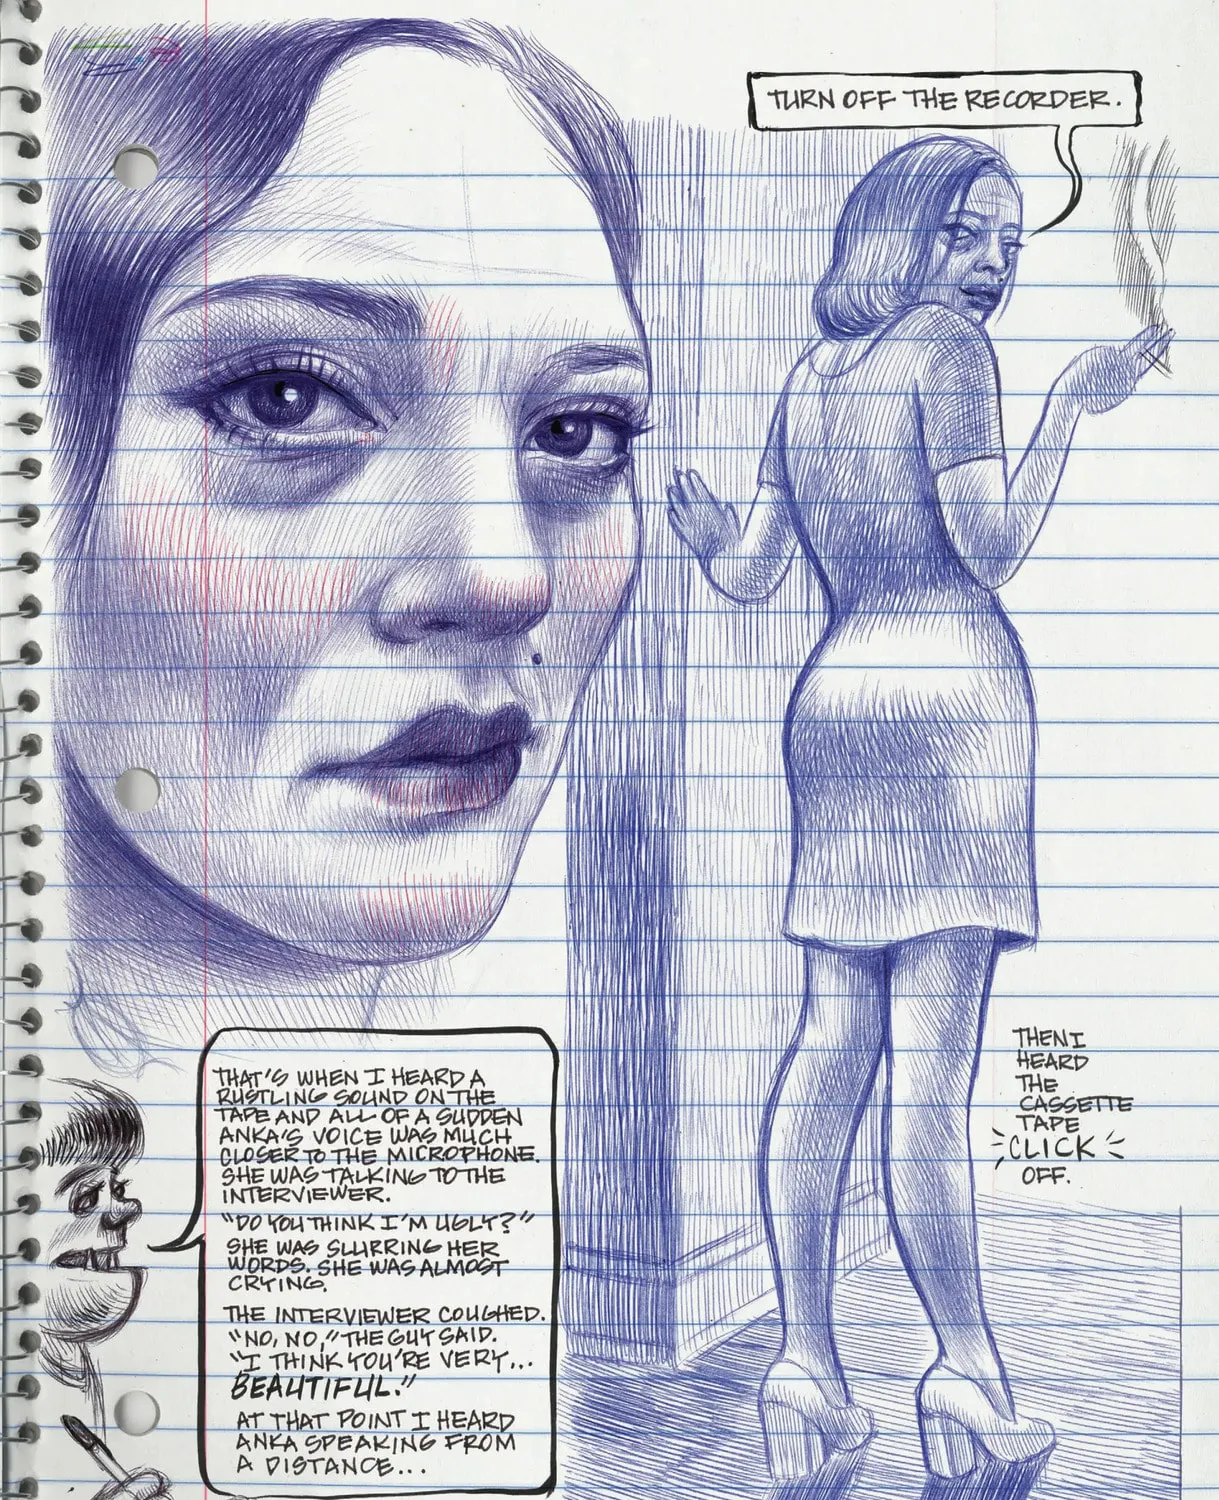 TURN OFF THE RECORDER.
THAT'S WHEN I HEARD A
RUSTLING SOUND ON THE
TAPE AND ALL OF A SUDDEN
ANKA'S VOICE WAS MUCH
CLOSER TO THE MICROPHONE.
SHE WAS TALKING TO THE
INTERVIEWER.
"DO YOU THINK I'M UGLY?"
SHE WAS SLURRING HER
WORDS. SHE WAS ALMOST
CRYING.
THE INTERVIEWER COUGHED.
"NO, NO," THE GUY SAID.
"I THINK YOU'RE VERY...
BEAUTIFUL."
AT THAT POINT I HEARD
ANKA SPEAKING FROM
A DISTANCE...
THEN I
HEARD
THE
CASSETTE
TAPE
CLICK
OFF.